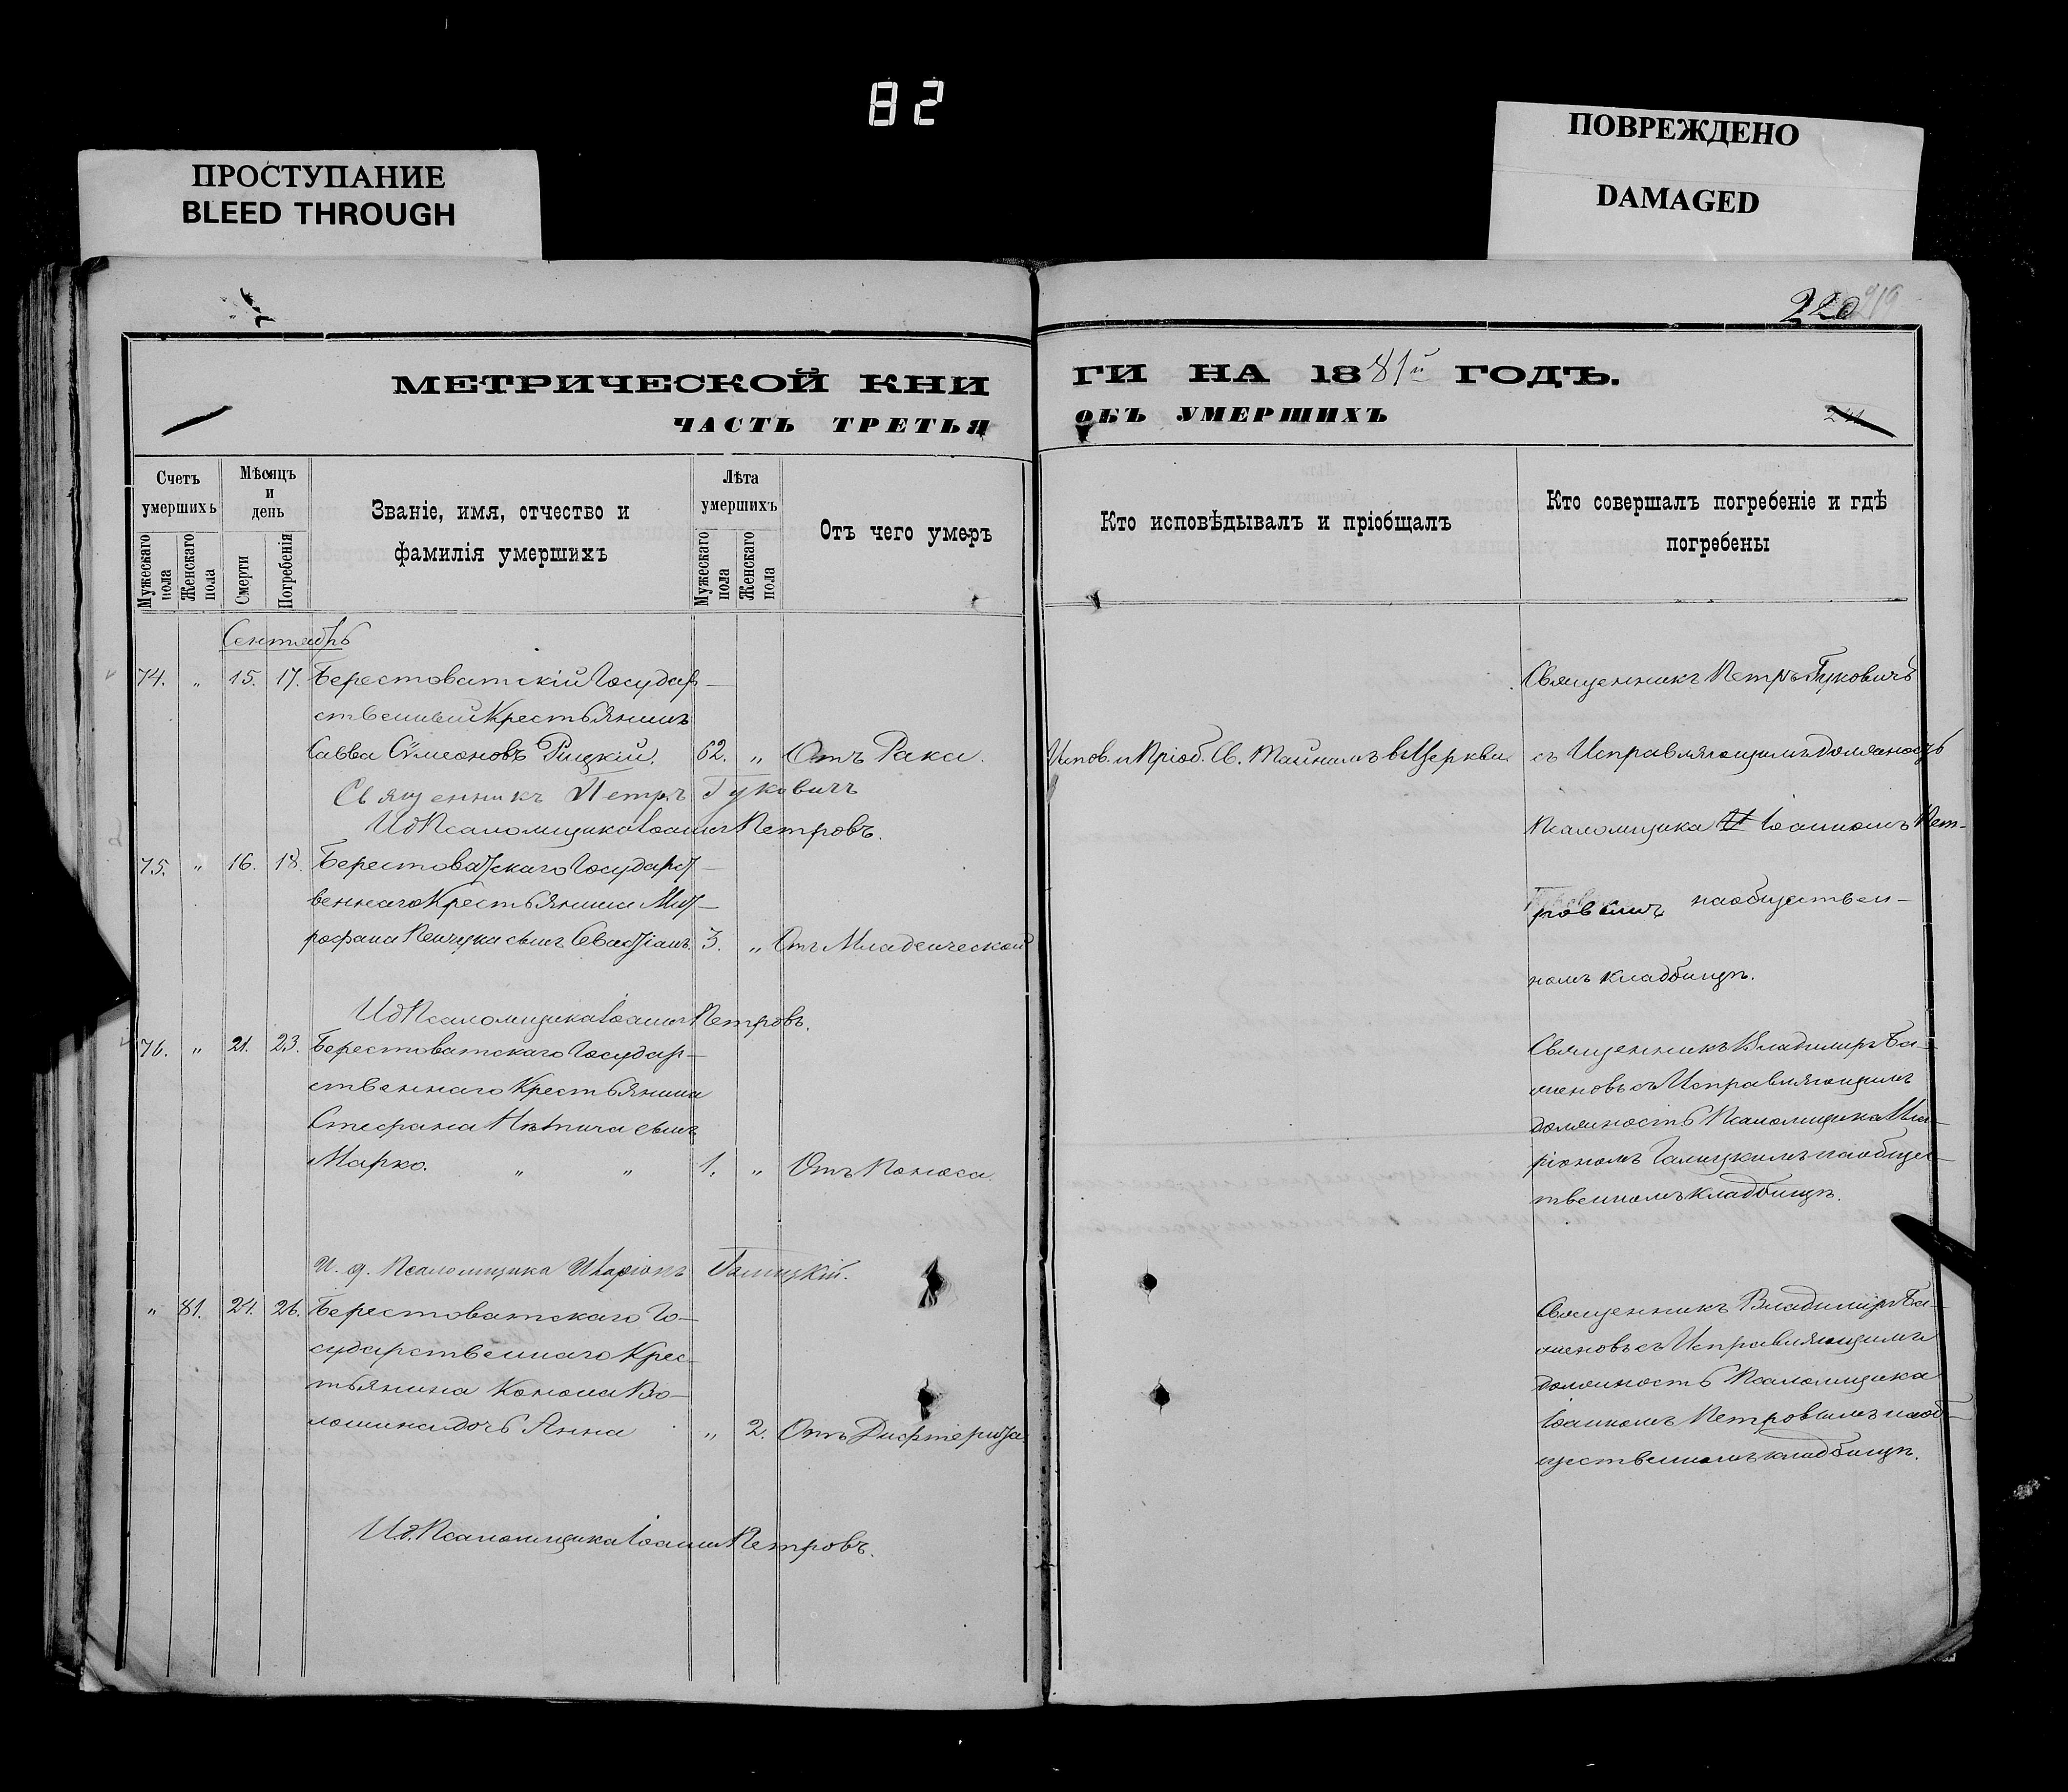 82
ПРОСТУПАНИЕ
BLEED THROUGH
ПОВРЕЖДЕНО
DAMAGED
220
219
МЕТРИЧЕСКОЙ КНИ
ЧАСТЬ ТРЕТЬЯ
ГИ НА 1881й ГОДЪ.
ОБЪ УМЕРШИХЪ
Счетъ умершихъ
Мужескаго пола
Женскаго пола
Мѣсяцъ и день
Смерти
Погребенія
Званіе, имя, отчество и
фамилія умершихъ
Лѣта умершихъ
Мужескаго пола
Женскаго пола
Отъ чего умеръ
Кто исповѣдывалъ и пріобщалъ
Кто совершалъ погребеніе и гдѣ
погребены
Сентябрь
74. " 15. 17. Берестоватскій Государ-
ственный Крестьянинъ
Савва Сѵмеоновъ Рицкій. 62. " Отъ Рака.
Испов. и Пріоб. Св. Тайнамъ въ Церкви.
Священникъ Петръ Гуковичъ
съ Исправляющимъ должность
Псаломщика Іоанномъ Пет-
ровымъ на обществен-
номъ кладбищѣ.
Священникъ Петръ Гуковичъ
ИдПсаломщика Іоаннъ Петровъ.
75. " 16. 18. Берестоватскаго Государст-
веннаго Крестьянина Мит-
рофана сынъ Севастіанъ. 3. " Отъ Младенческой
ИдПсаломщика Іоаннъ Петровъ.
76. " 21. 23. Берестоватскаго Государ-
ственнаго Крестьянина
Стефана сынъ
Марко. " " 1. " Отъ Поноса.
Священникъ Владиміръ Ба-
женовъ съ Исправляющимъ
должность Псаломщика Ила-
ріономъ Галицкимъ на общес-
твенномъ кладбищѣ.
И. д. Псаломщика Иларіонъ Галицкій.
" 81. 24. 26. Берестоватскаго Го-
сударственнаго Крес-
тьянина Конона Во-
лошина дочь Анна " 2. Отъ Дифтерита
Священникъ Владиміръ Ба-
женовъ съ Исправляющимъ
должность Псаломщика
Іоанномъ Петровымъ на об-
щественномъ кладбищѣ.
Ид.Псаломщика Іоаннъ Петровъ.